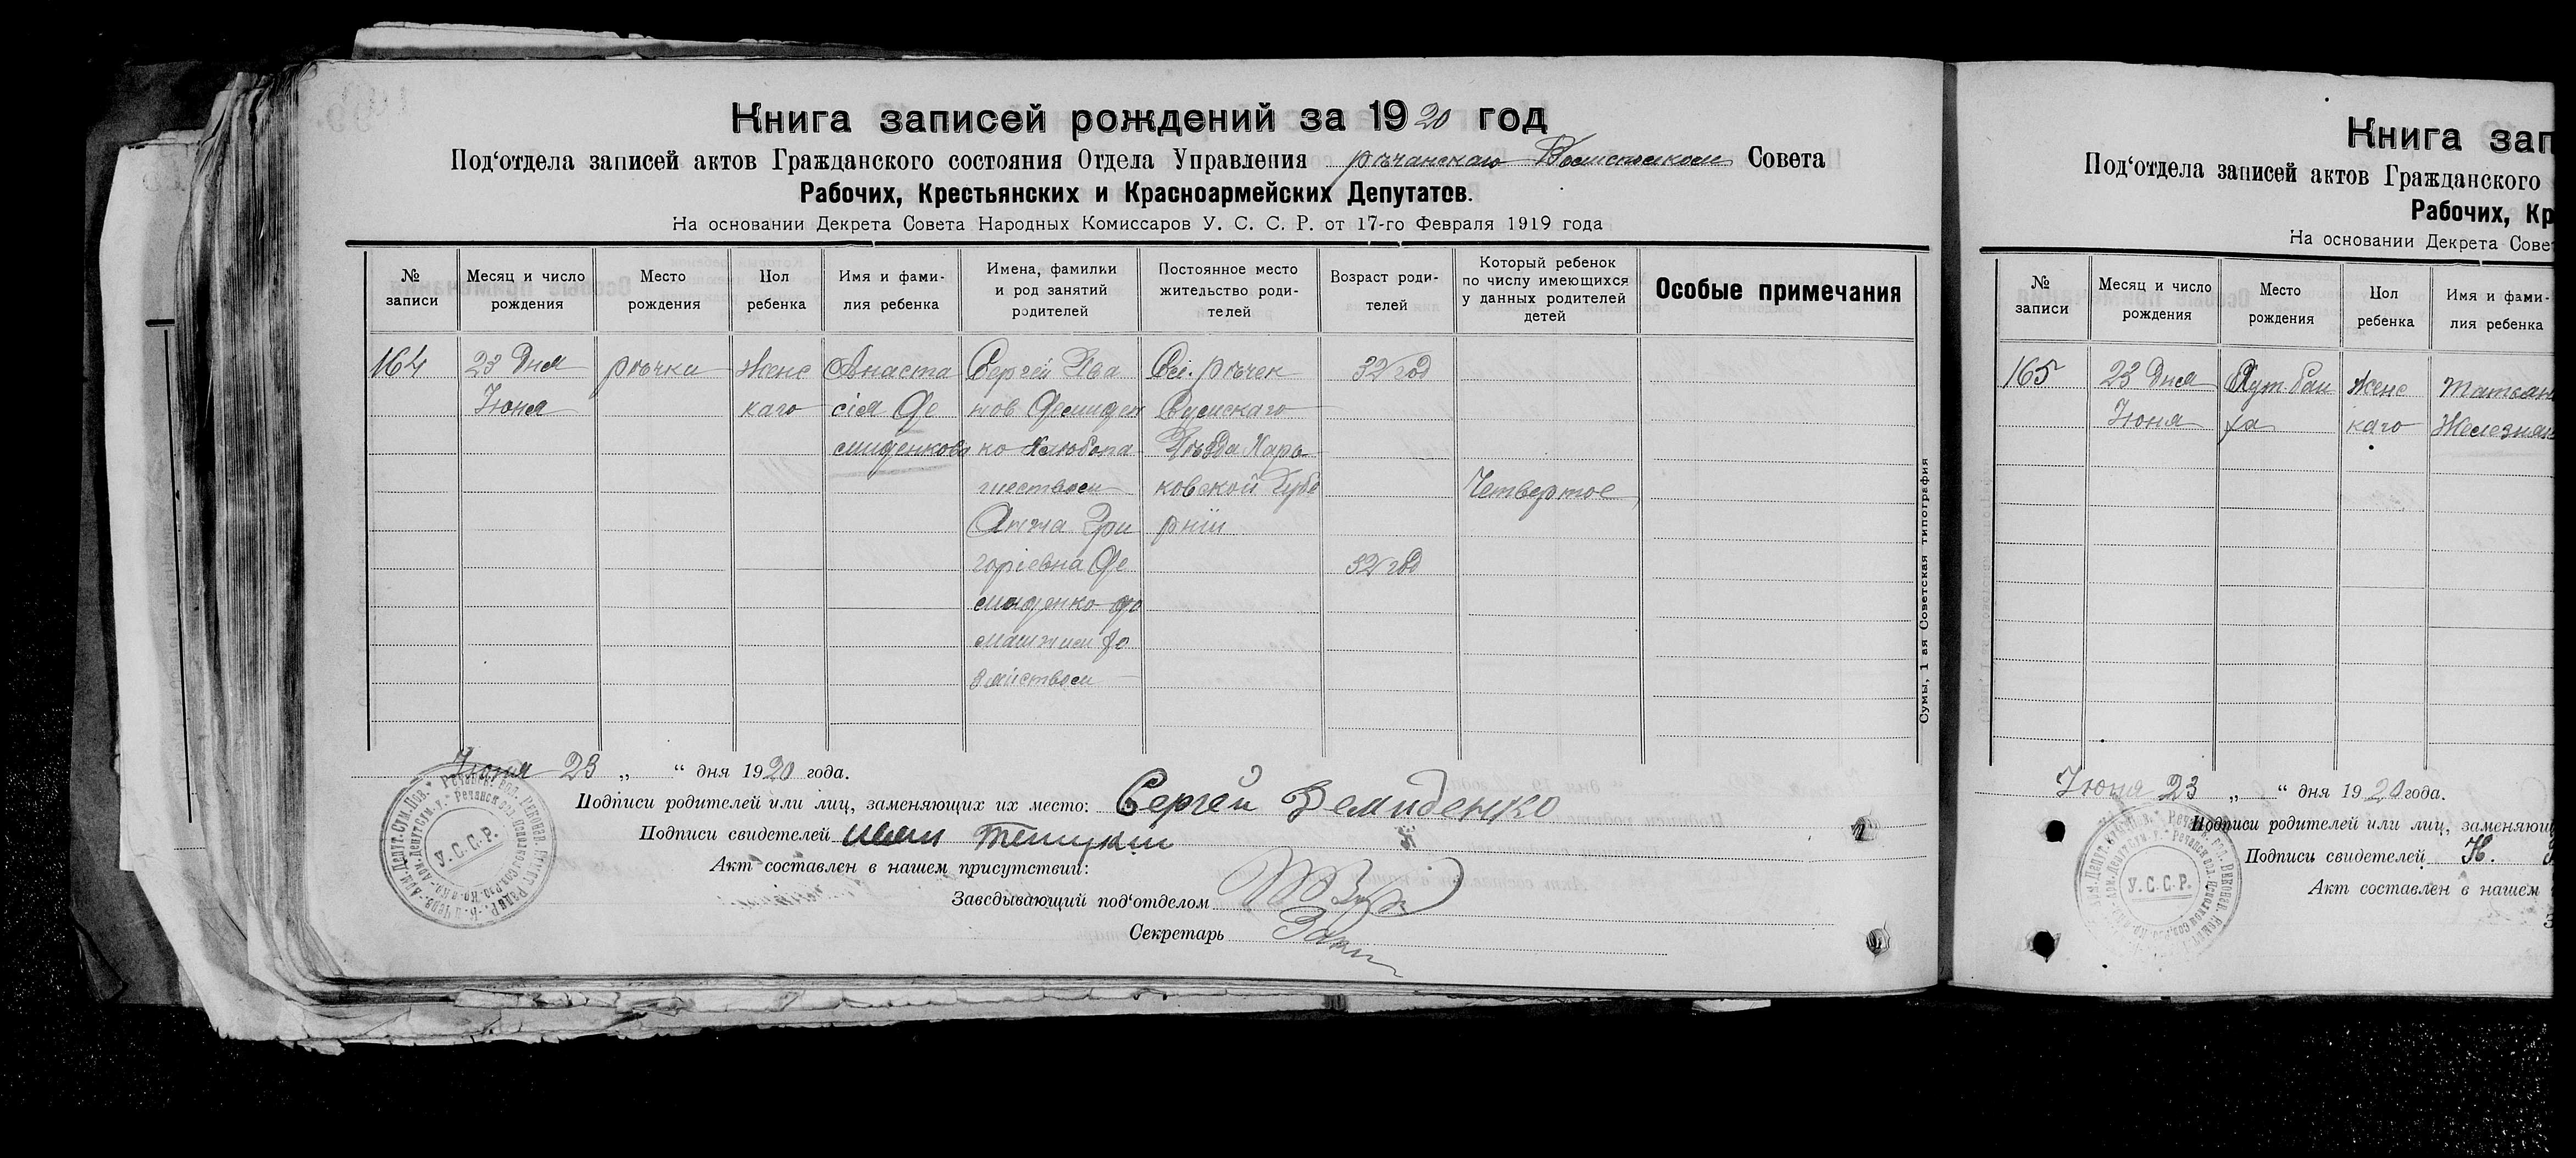 Книга записей рождений за 1920 год
Под‘отдела записей актов Гражданского состояния Отдела Управления рѣчанскаго Совета
Рабочих, Крестьянских и Красноармейских Депутатов.
На основании Декрета Совета Народных Комиссаров У. С. С. Р. от 17-го Февраля 1919 года
№ записи
Месяц и число рождения
Место рождения
Пол ребенка
Имя и фами-
лия ребенка
Имена, фамилии
и род занятий
родителей
Постоянное место
жительство роди-
телей
Возраст роди-
телей
Который ребенок
по числу имеющихся
у данных родителей
детей
Особые примечания
164
23 Дня
Июня
рѣчки
Женс
каго
Анаста
сія Де
миденкова
Сергей Ива
нов Демиден
ко хлѣбопа
шеством
Анна Гри
горіевна Де
миденко до
машним хо
зяйством
Сел. Рѣчек
Сумскаго
Уѣзда Харь
ковской Губе
рніи
32 год
32 год
Четвертое
Июня 23 „ “ дня 1920 года.
Подписи родителей или лиц, заменяющих их место: Сергей Демиденко
Подписи свидетелей
Акт составлен в нашем присутствий:
Заведывающий под‘отделом
Секретарь
У.С.С.Р.
Сумы, 1 ая Советская типография
Книга зап
Под‘отдела записей актов Гражданского
Рабочих, Кр
На основании Декрета Совет
№ записи
Месяц и число
рождения
Место
рождения
Пол
ребенка
Имя и фами-
лия ребенка
165
23 Дня
Июня
Хут.
Женс
каго
Татьян
Железняк
Июня 23 „ “ дня 1920 года.
Подписи родителей или лиц, заменяющ
Подписи свидетелей Н.
Акт составлен в нашем
У.С.С.Р.